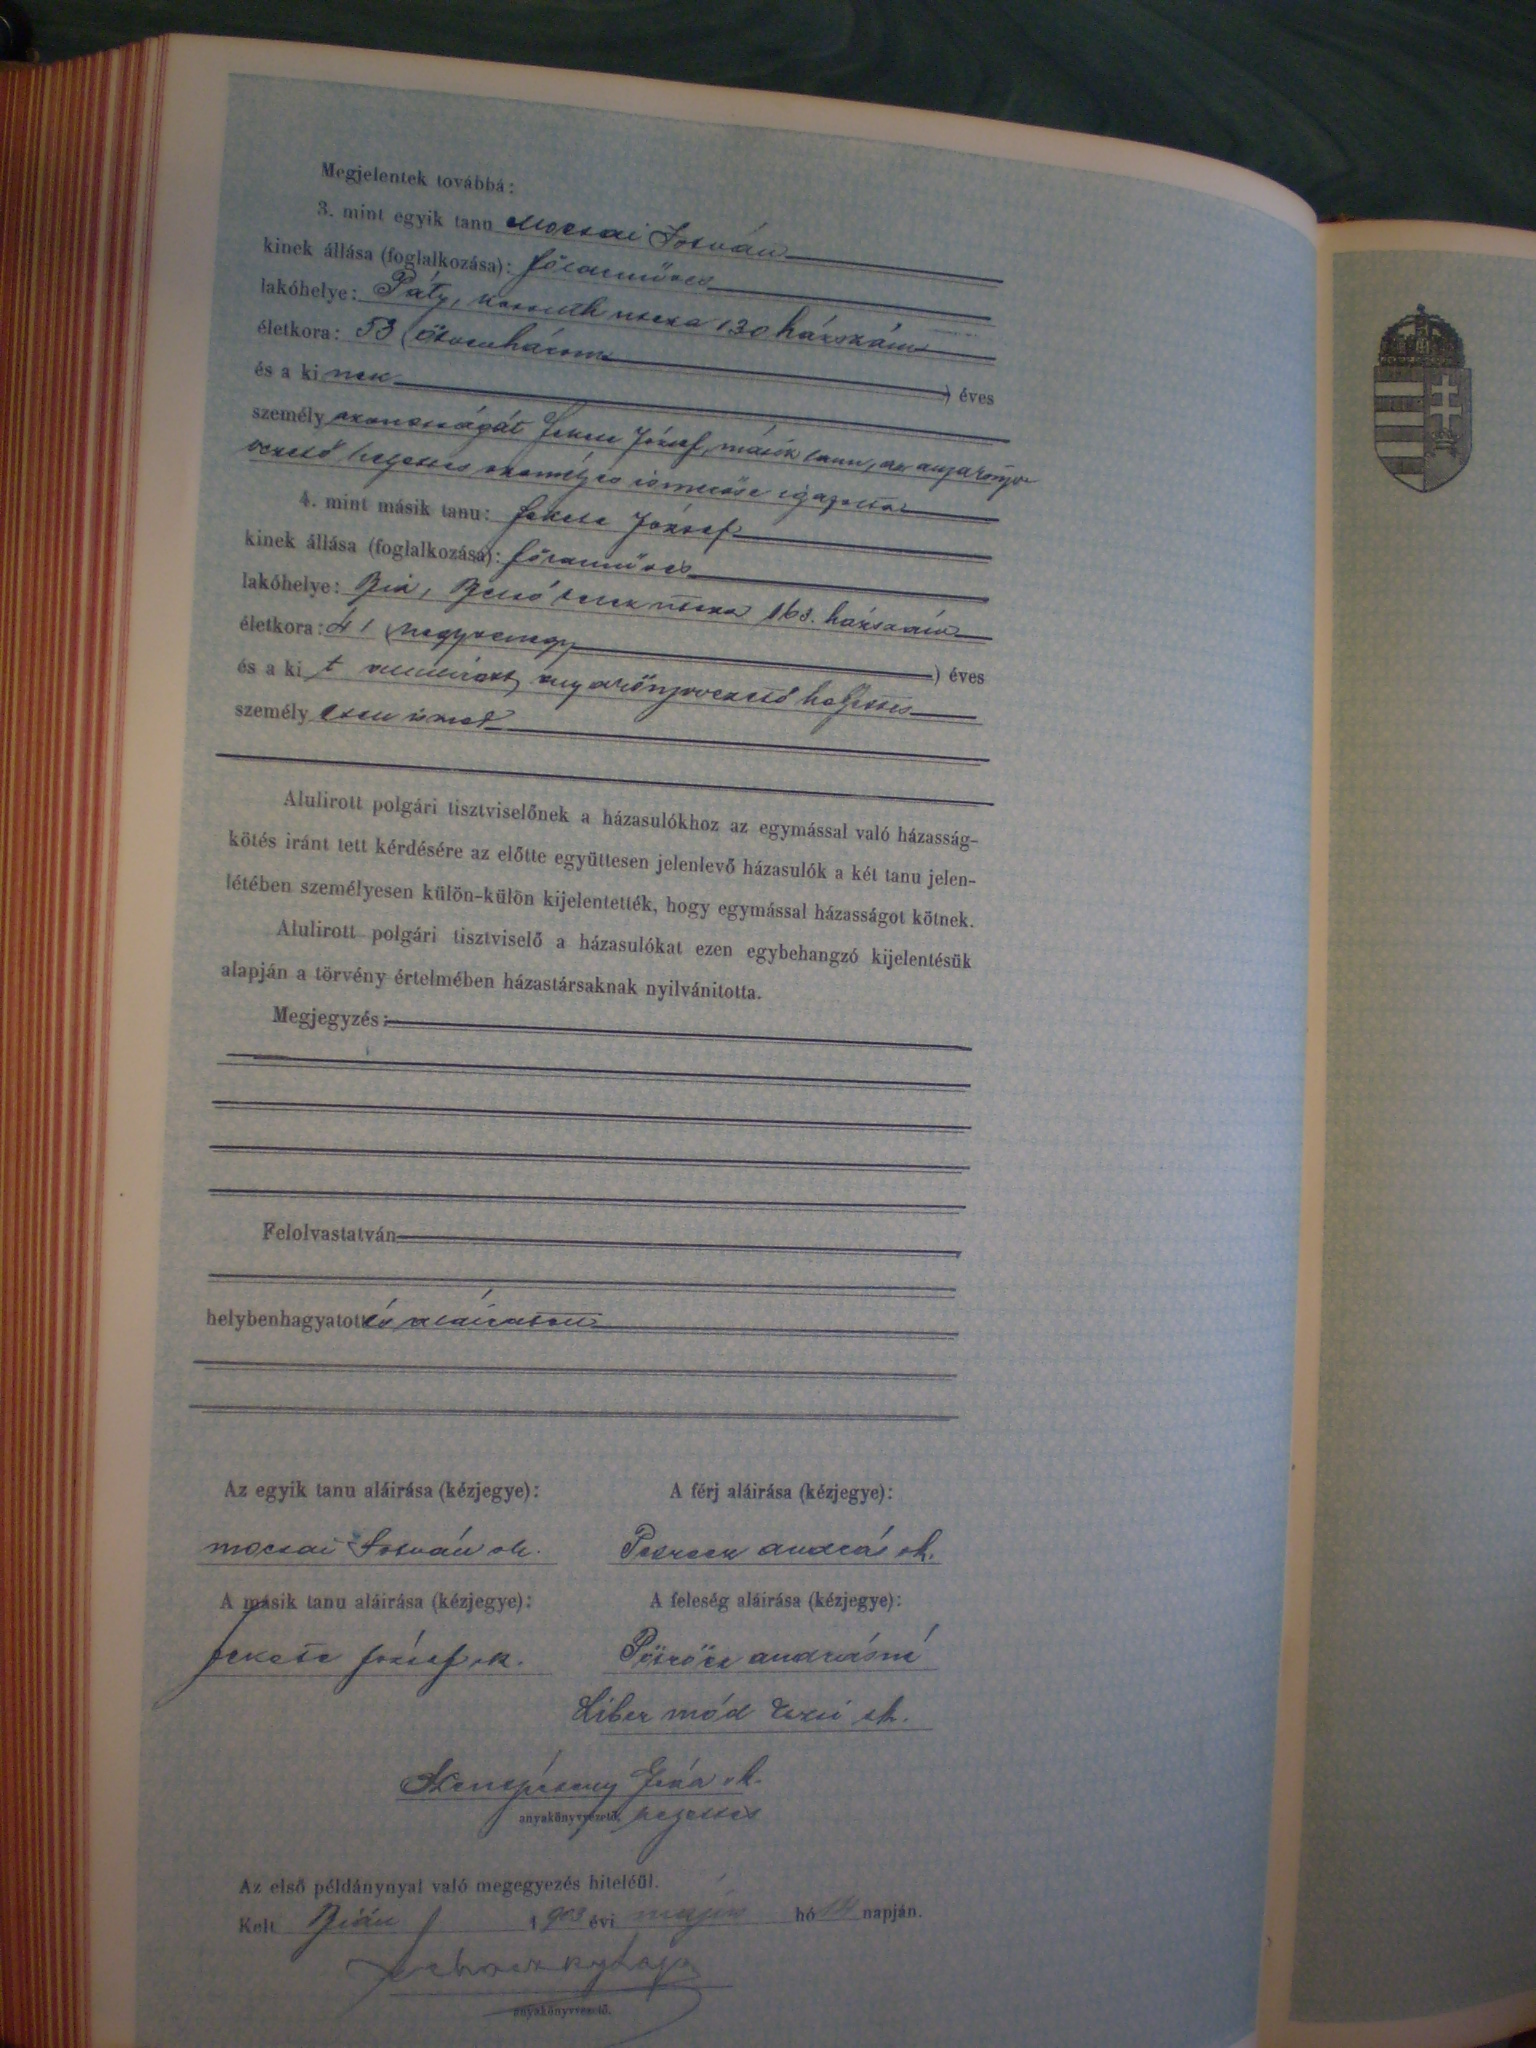 Megjelentek továbbá:
3. mint egyik tanu Mocsai István
kinek állása (foglalkozása): földműves
lakóhelye: Páty, Kossuth utcza 130 házszám
életkora: 53 (ötvenhárom
) éves
és a ki nek
személy azonosságát Fekete József, másik tanu, az anyakönyv
vezető helyettes személyes ismerőse igazolta
4. mint másik tanu: Fekete József
kinek állása (foglalkozása): földműves
lakóhelye: Bia, Belső telek utcza 163. házszám
életkora: 41 (negyvenegy
) éves
és a ki t alulirott anyakönyvvezető helyettes
személy esen ismer
Alulirott polgári tisztviselőnek a házasulókhoz az egymással való házasság-
kötés iránt tett kérdésére az előtte együttesen jelenlevő házasulók a két tanu jelen-
létében személyesen külön-külön kijelentették, hogy egymással házasságot kötnek.
Alulirott polgári tisztviselő a házasulókat ezen egybehangzó kijelentésük
alapján a törvény értelmében házastársaknak nyilvánitotta.
Megjegyzés:
Felolvastatván
helybenhagyatott és aláiratott
Az egyik tanu aláirása (kézjegye): A férj aláirása (kézjegye):
Mocsai István sk. András sk.
A másik tanu aláirása (kézjegye): A feleség aláirása (kézjegye):
Fekete József sk. Andrásné
Liber mód Teréz sk.
Géza sk.
anyakönyvvezető, helyettes
Az első példánynyal való megegyezés hiteléül.
Kelt Bián 1903 évi május hó 14 napján.
anyakönyvvezető.